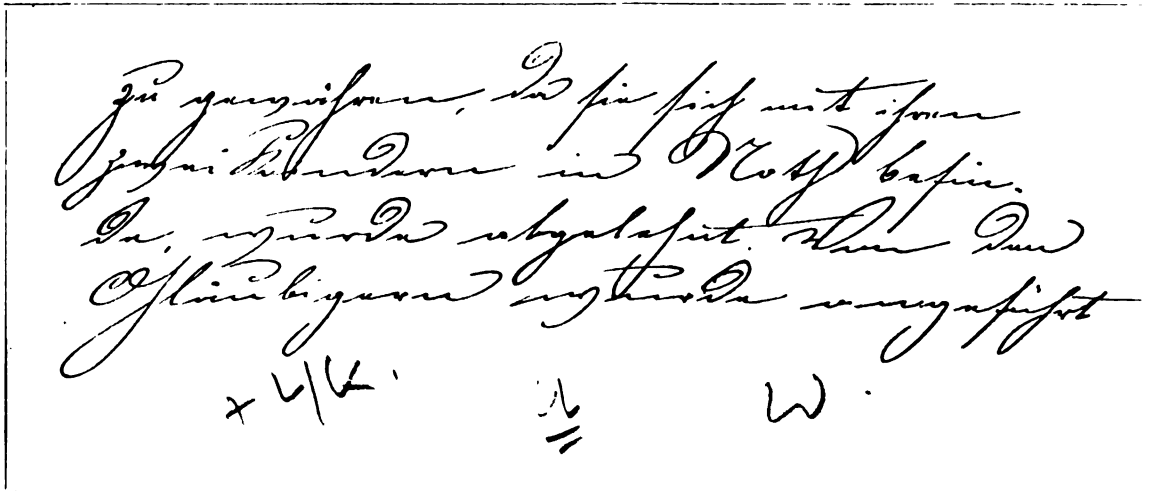 zu gewähren, da sie sich mit ihren
zwei Kindern in Noth befin-
de, wurde abgelehnt. Von den
Gläubigern wurde angeführt
W.